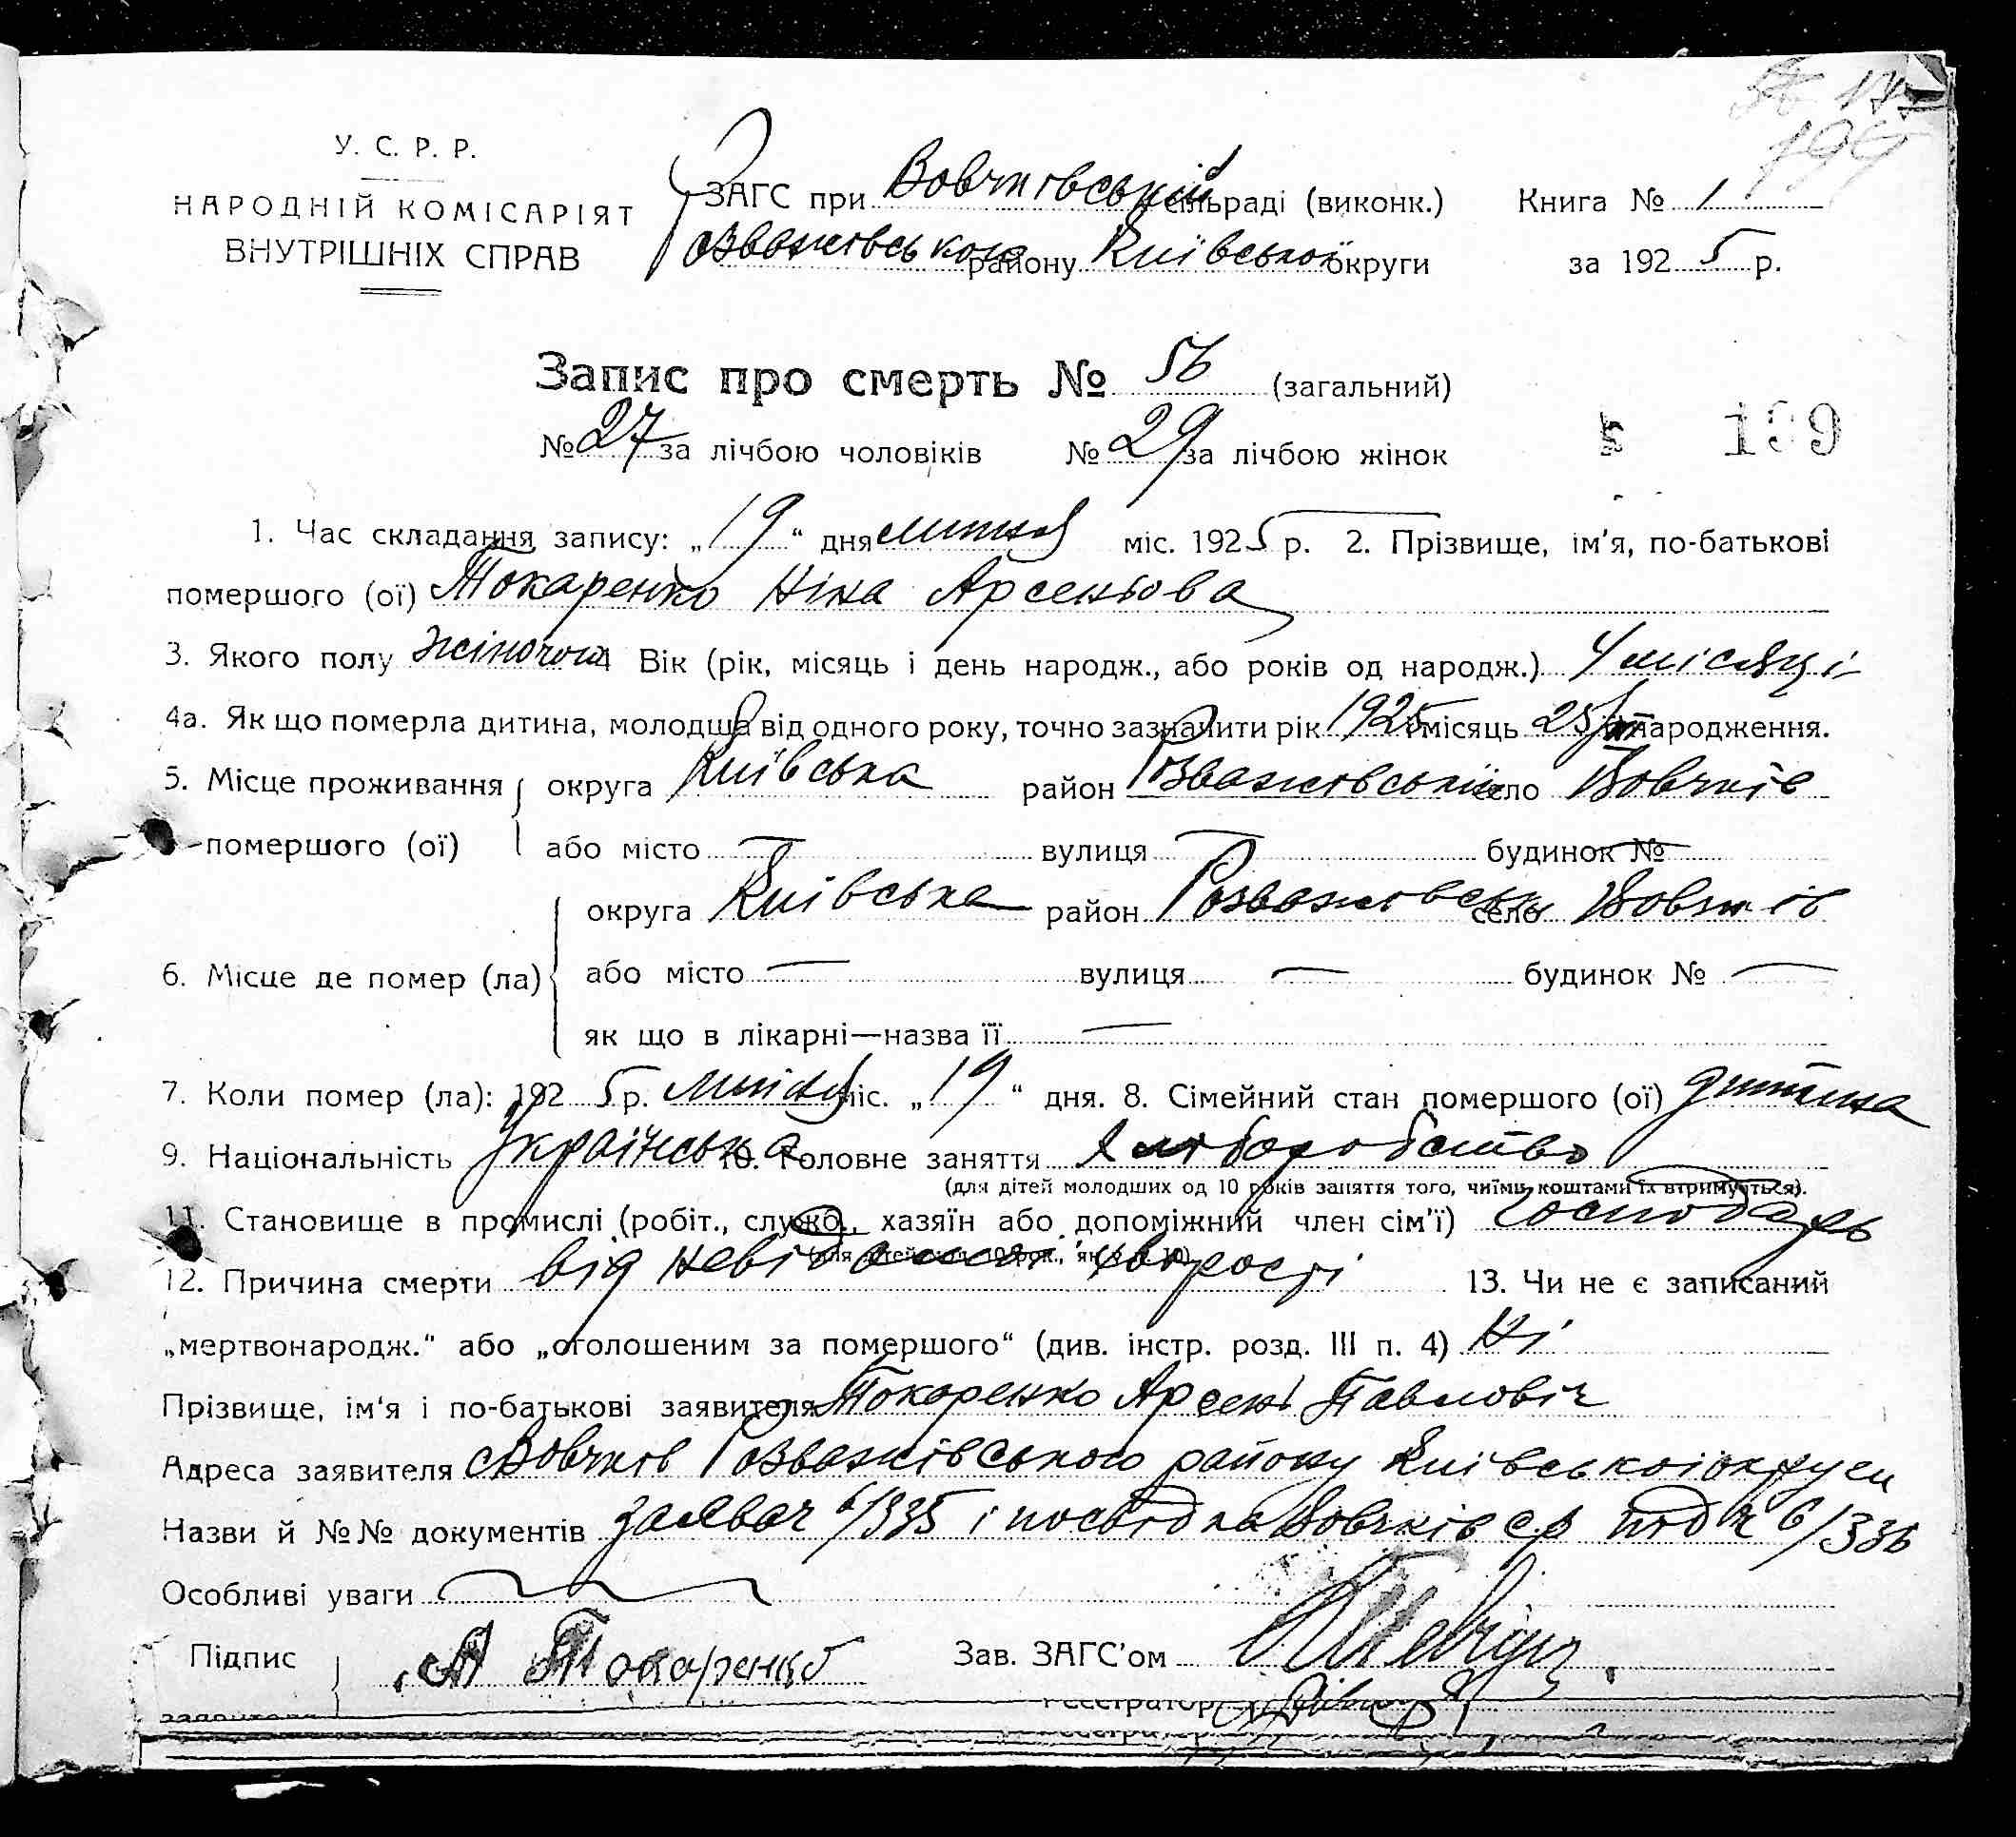 У. С. Р. Р.
НАРОДНІЙ КОМІСАРІЯТ
ВНУТРІШНІХ СПРАВ
ЗАГС при Вовчківській сільраді (виконк.)
Розважівського району Київської округи
Книга № 1
за 1925 р.
199
Запис про смерть № 56 (загальний)
№ 27 за лічбою чоловіків № 29 за лічбою жінок
199
1. Час складання запису: „19“ дня липня міс. 1925 р. 2. Прізвище, ім'я, по-батькові
помершого (ої) Токаренко Ніна Арсентова
3. Якого полу жіночого 4 Вік (рік, місяць і день народж., або років од народж.) 4 місяці
4а. Як що померла дитина, молодша від одного року, точно зазначити рік 1925 місяць 25/III народження.
5. Місце проживання округа Київська район Розважівський село Вовчків
помершого (ої) або місто — вулиця — будинок № —
округа Київська район Розважівськ село Вовчків
6. Місце де помер (ла) або місто — вулиця — будинок № —
як що в лікарні—назва її —
7. Коли помер (ла): 1925 р. липня міс. „19“ дня. 8. Сімейний стан помершого (ої) дитина
9. Національність українська 10. Головне заняття хліборобство
(для дітей молодших од 10 років заняття того, чиїми коштами їх втримується).
11. Становище в промислі (робіт., служб., хазяїн або допоміжний член сім'ї) господарь
(для дітей мол. 10 рок., як в п. 10)
12. Причина смерти від невідомої хворости 13. Чи не є записаний
„мертвонародж.“ або „оголошеним за помершого“ (див. інстр. розд. III п. 4) Ні
Прізвище, ім'я і по-батькові заявителя Токаренко Арсені Павловіч
Адреса заявителя Вовчків Розважівського району Київської округи
Назви й №№ документів заявач 6/335 і посвідка Вовчків с р під ч 6/336
Особливі уваги
Підпис А Токаренко Зав. ЗАГС'ом
заявителя Реєстратор